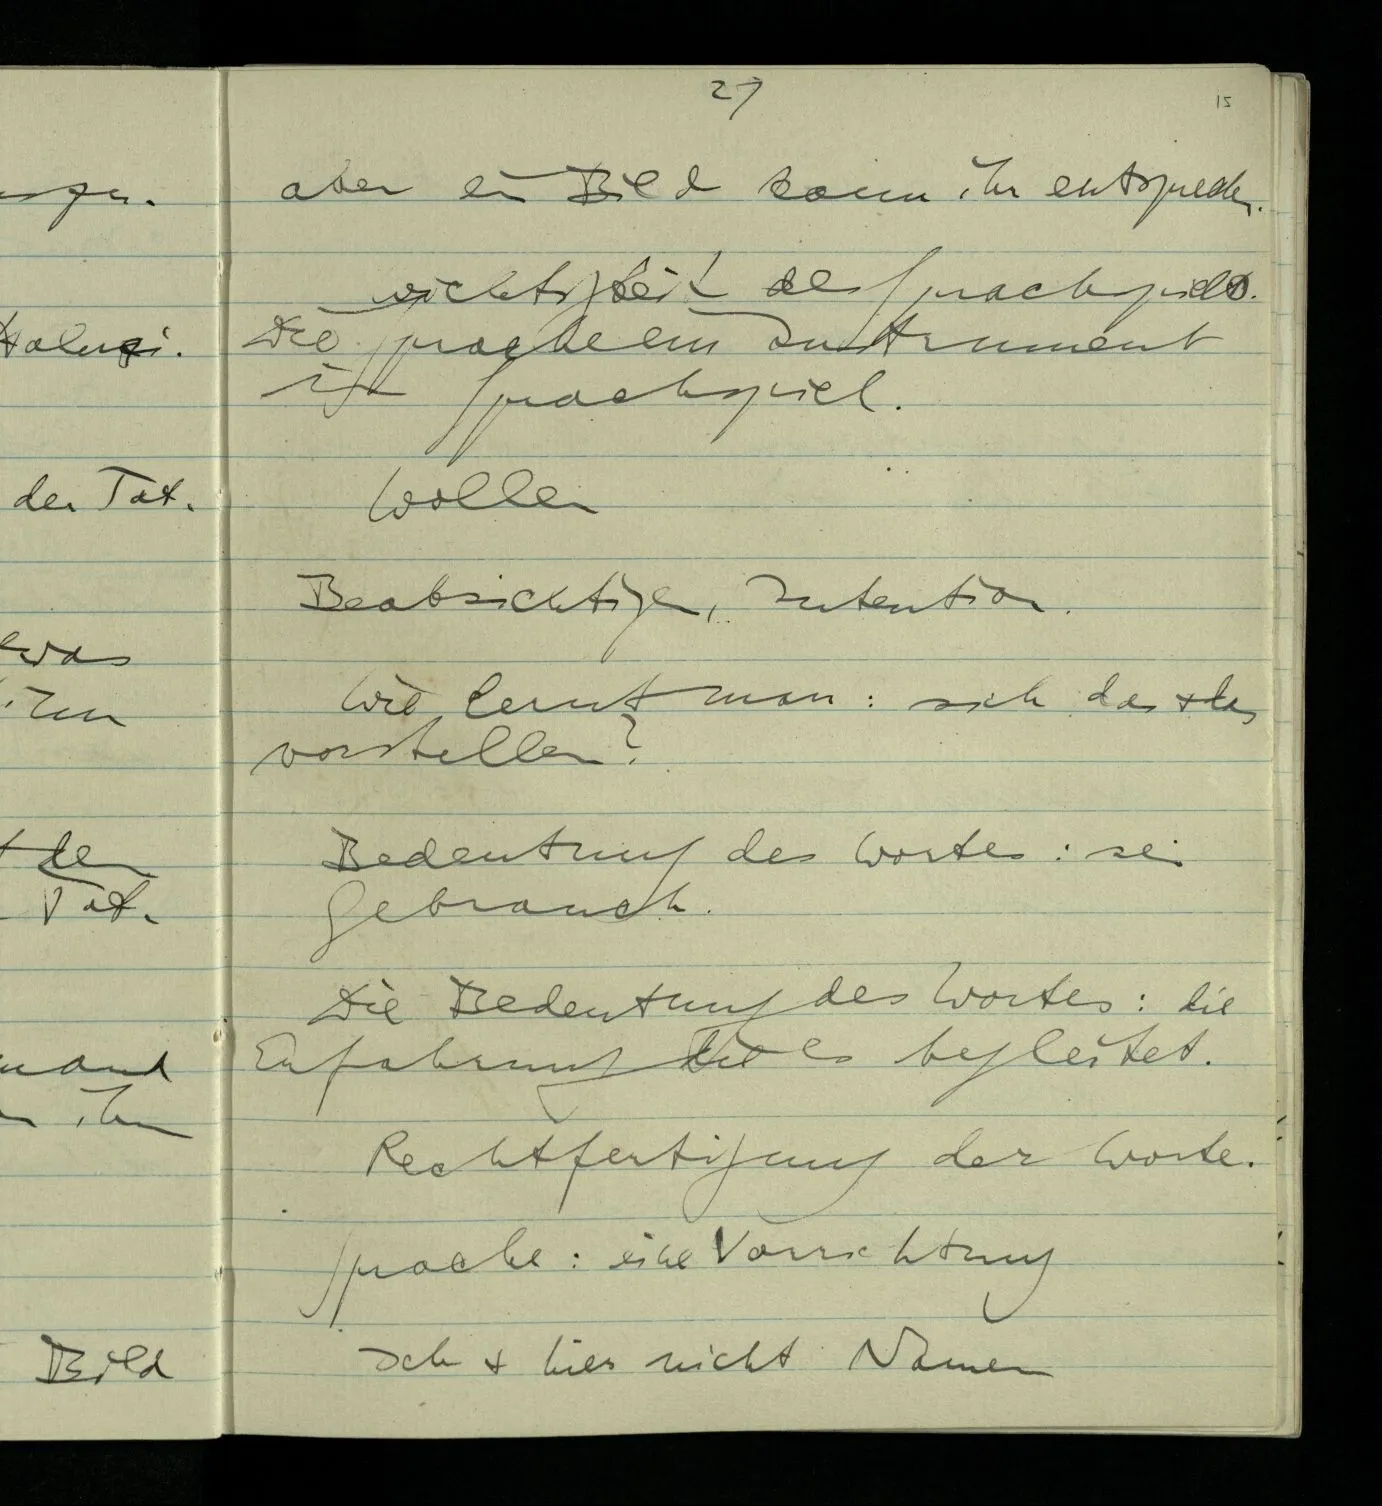 27
15
aber ein Bild kann ihr entsprechen.
Wichtigkeit des Sprachspiels.
Die Sprache ein Instrument
im Sprachspiel.
Wollen
Beabsichtigen, Intention.
Wie lernt man: sich das & das
vorstellen?
Bedeutung des Wortes: sein
Gebrauch.
Die Bedeutung des Wortes: die
Erfahrung die es begleitet.
Rechtfertigung der Worte.
Sprache: eine Vorrichtung
Ich & hier nicht Namen
der Tat.
etwas
ihm
der
Tat.
ihm
Bild